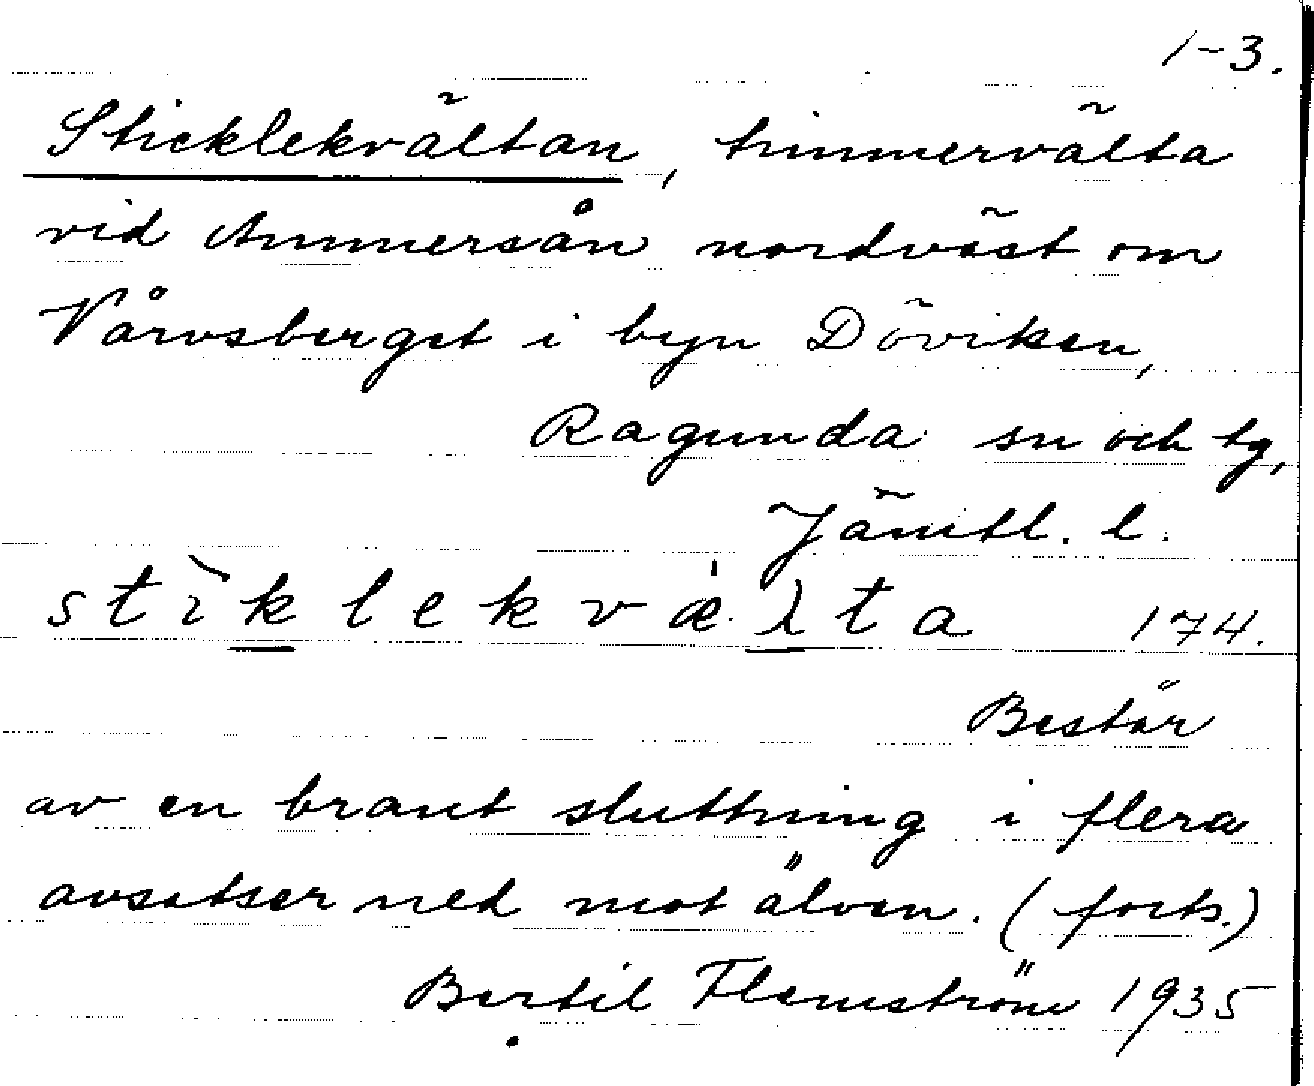 1-3.
Sticklekvältan, timmervälta
vid Ammersån nordväst om
Vårvsberget i byn Döviken,
Ragunda sn och tg,
Jämtl. l.
stìklekvæ̍λta 174.
Består
av en brant sluttning i flera
avsatser ned mot älven. (forts.)
Bertil Flemström 1935